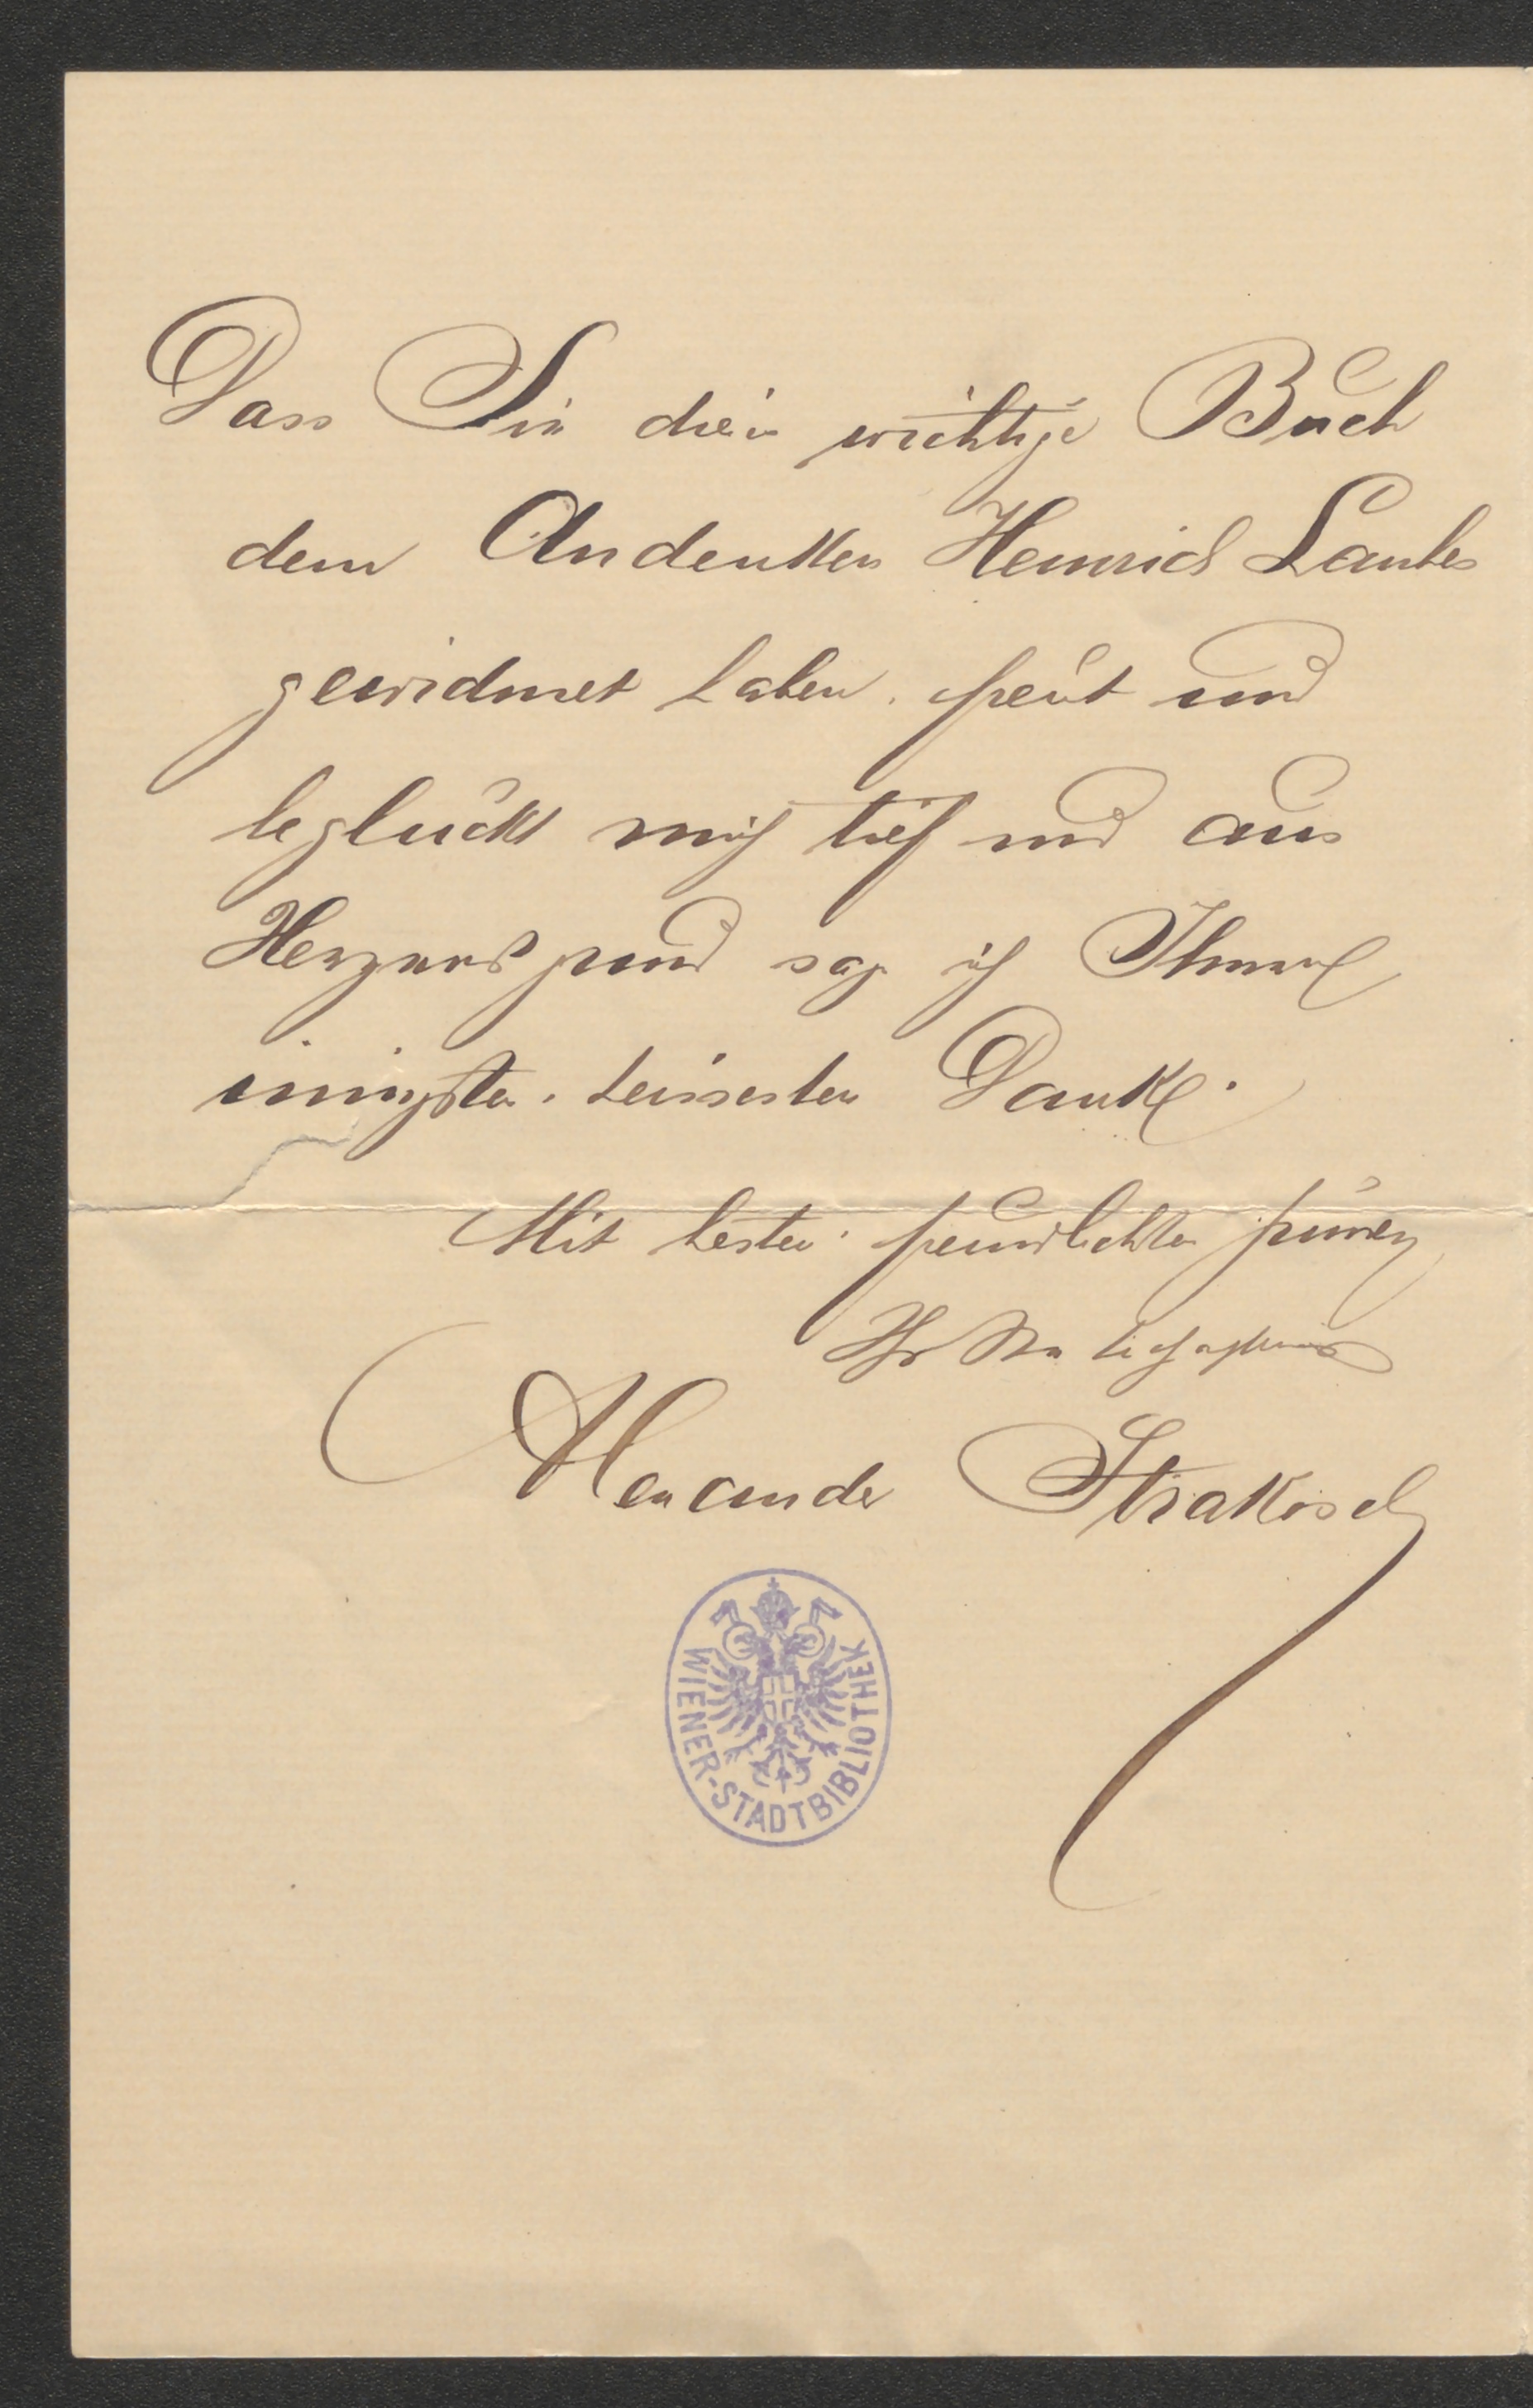 Dass Sie dieses wichtige Buch
dem Andenken Heinrich Laubes
gewidmet haben, freut und
beglückt mich tief und aus
Herzensgrund sage ich Ihnen
innigsten, heissesten Dank.
Mit besten, freundlichsten Grüßen
Ihr
Alexander Strakosch
WIENER-STADTBIBLIOTHEK